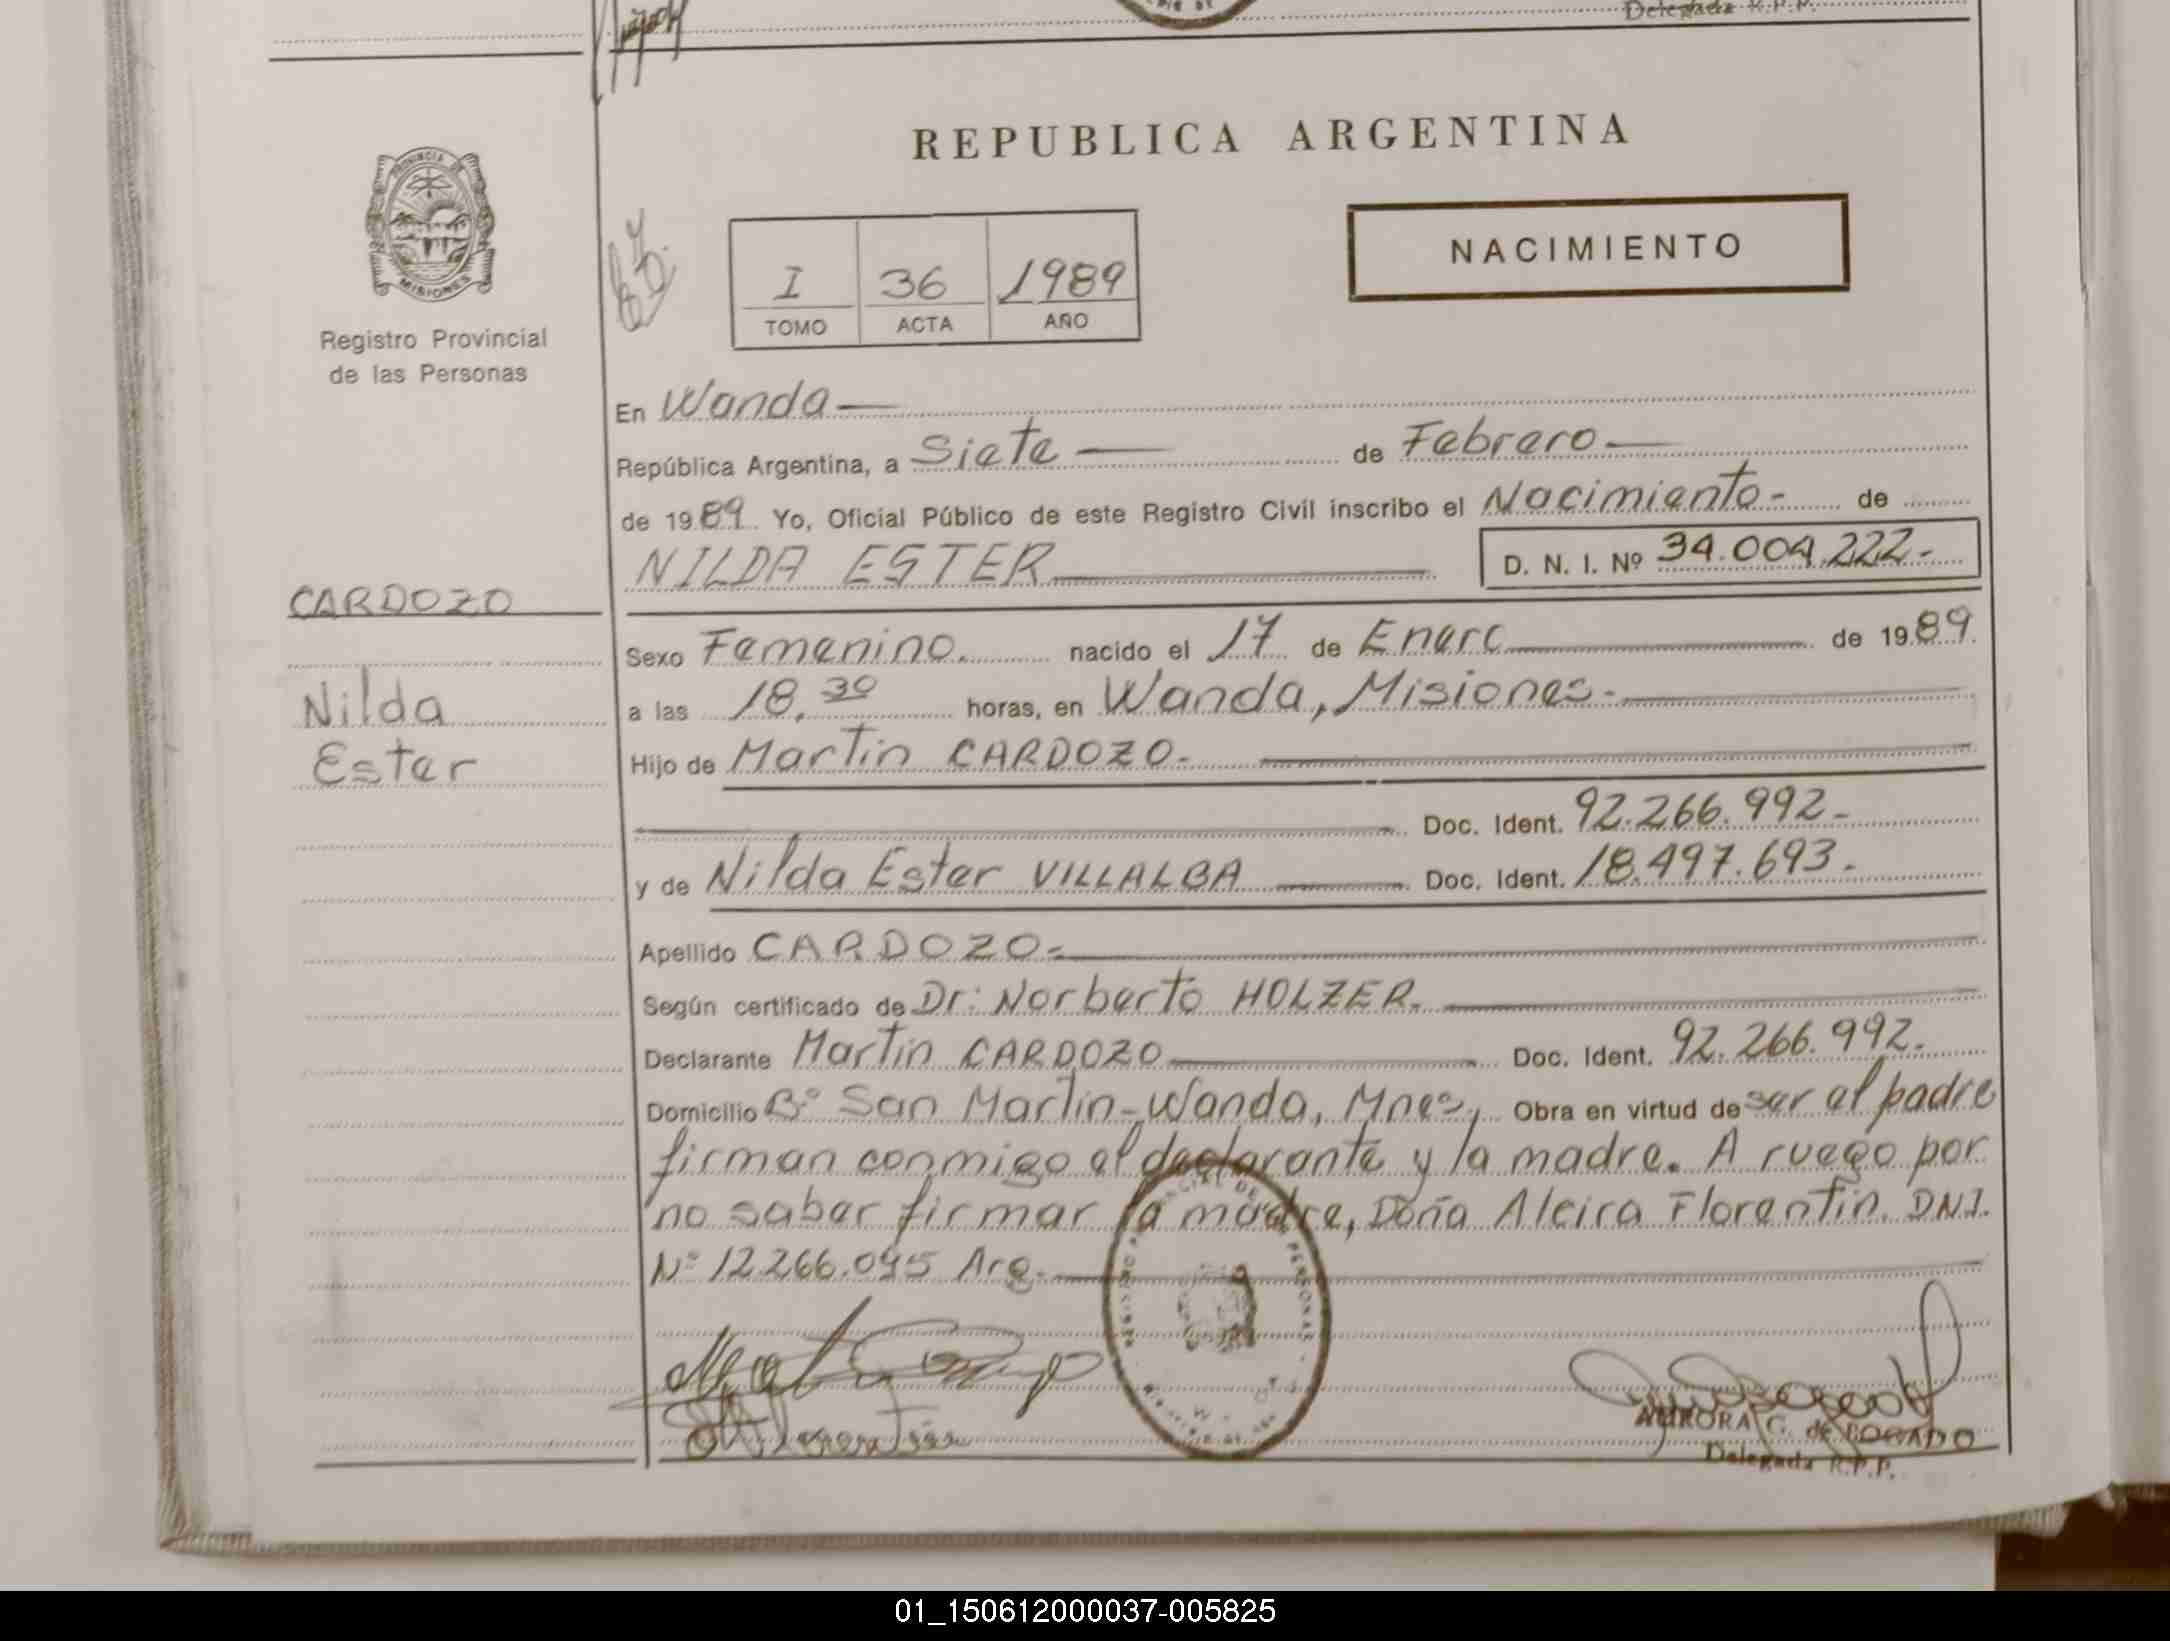 Delegada R.P.P.
REPUBLICA ARGENTINA
PROVINCIA DE
MISIONES
Registro Provincial
de las Personas
NACIMIENTO
I 36 1989
TOMO ACTA AÑO
En Wanda
República Argentina, a Siete de Febrero
de 1989 Yo, Oficial Público de este Registro Civil inscribo el Nacimiento- de
NILDA ESTER D. N. I. Nº 34.004.222.-
CARDOZO
Nilda
Ester
Sexo Femenino. nacido el 17 de Enero de 1989.
a las 18,30 horas, en Wanda, Misiones.-
Hijo de Martin CARDOZO.-
Doc. Ident. 92.266.992-
y de Nilda Ester VILLALBA Doc. Ident. 18.497.693.-
Apellido CARDOZO.-
Según certificado de Dr: Norberto HOLZER.
Declarante Martin CARDOZO Doc. Ident. 92.266.992.
Domicilio Bº San Martin-Wanda, Mnes, Obra en virtud de ser el padre
firman conmigo el declarante y la madre. A ruego por
no saber firmar la madre, Doña Alcira Florentin. DNI.
Nº 12.266.095 Arg.-
REGISTRO PROVINCIAL DE LAS PERSONAS
AURORA G. de BOGADO
Delegada R.P.P.
01_150612000037-005825